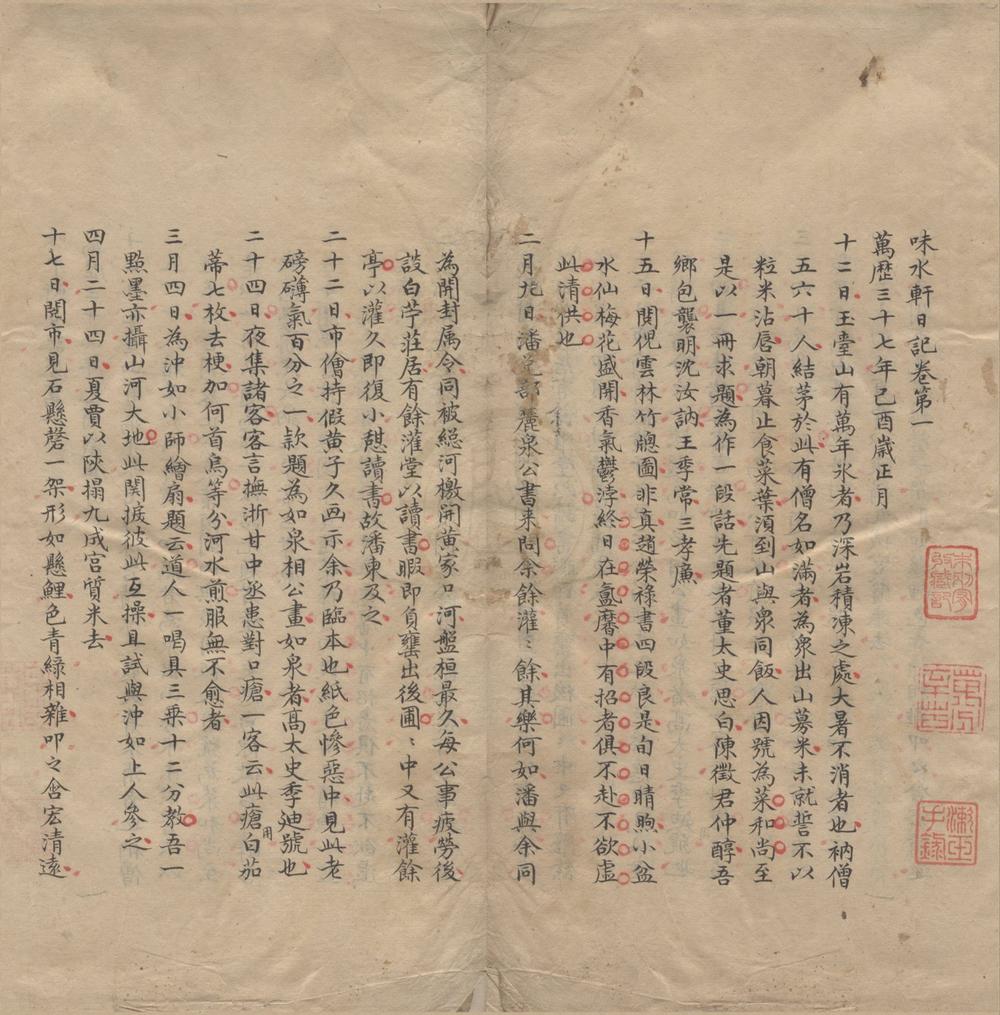 味水軒日記卷第一
萬歷三十七年己酉歲正月
十二日玉堂山有萬年氷者乃深岩積凍之處大暑不消者也衲僧
五六十人結茅於此有僧名如滿者為衆出山募米未就誓不以
粒米沾唇朝暮止食菜葉湏到山與衆同飯人因號為菜和尚至
是以一冊求題為作一段話先題者董太史思白陳徵君仲醇吾
鄉包襲明沈汝訥王季常三孝亷
十五日閱倪雲林竹牕圖非真趙榮祿書四段良是旬日晴煦小盆
水仙梅花盛開香氣鬱浡終日在氤麝中有招者俱不赴不欲虛
此清供也
二月九日潘兌部麓泉公書来問余餘灌〻餘其樂何如潘與余同
為開封属令同被緫河檄開黄家口河盤桓最久每公事疲勞後
談白苧莊居有餘灌堂以讀書暇即負甕出後圃〻中又有灌餘
亭以灌久即復小憇讀書故潘東及之
二十二日市儈持假黄子久画示余乃臨本也紙色慘惡中見此老
磅礡氣百分之一款題為如泉相公畫如泉者高太史季迪號也
二十四日夜集諸客客言撫浙甘中丞患對口瘡一客云此瘡用白茄
蒂七枚去梗加何首烏等分河水煎服無不愈者
三月四日為沖如小師繪扇題云道人一喝具三乗十二分教吾一
點墨亦攝山河大地此関捩彼此互操且試與沖如上人參之
四月二十四日夏賈以陝搨九成宫質米去
十七日閱市見石懸磬一架形如懸鯉色青綠相雜叩之含宏清遠